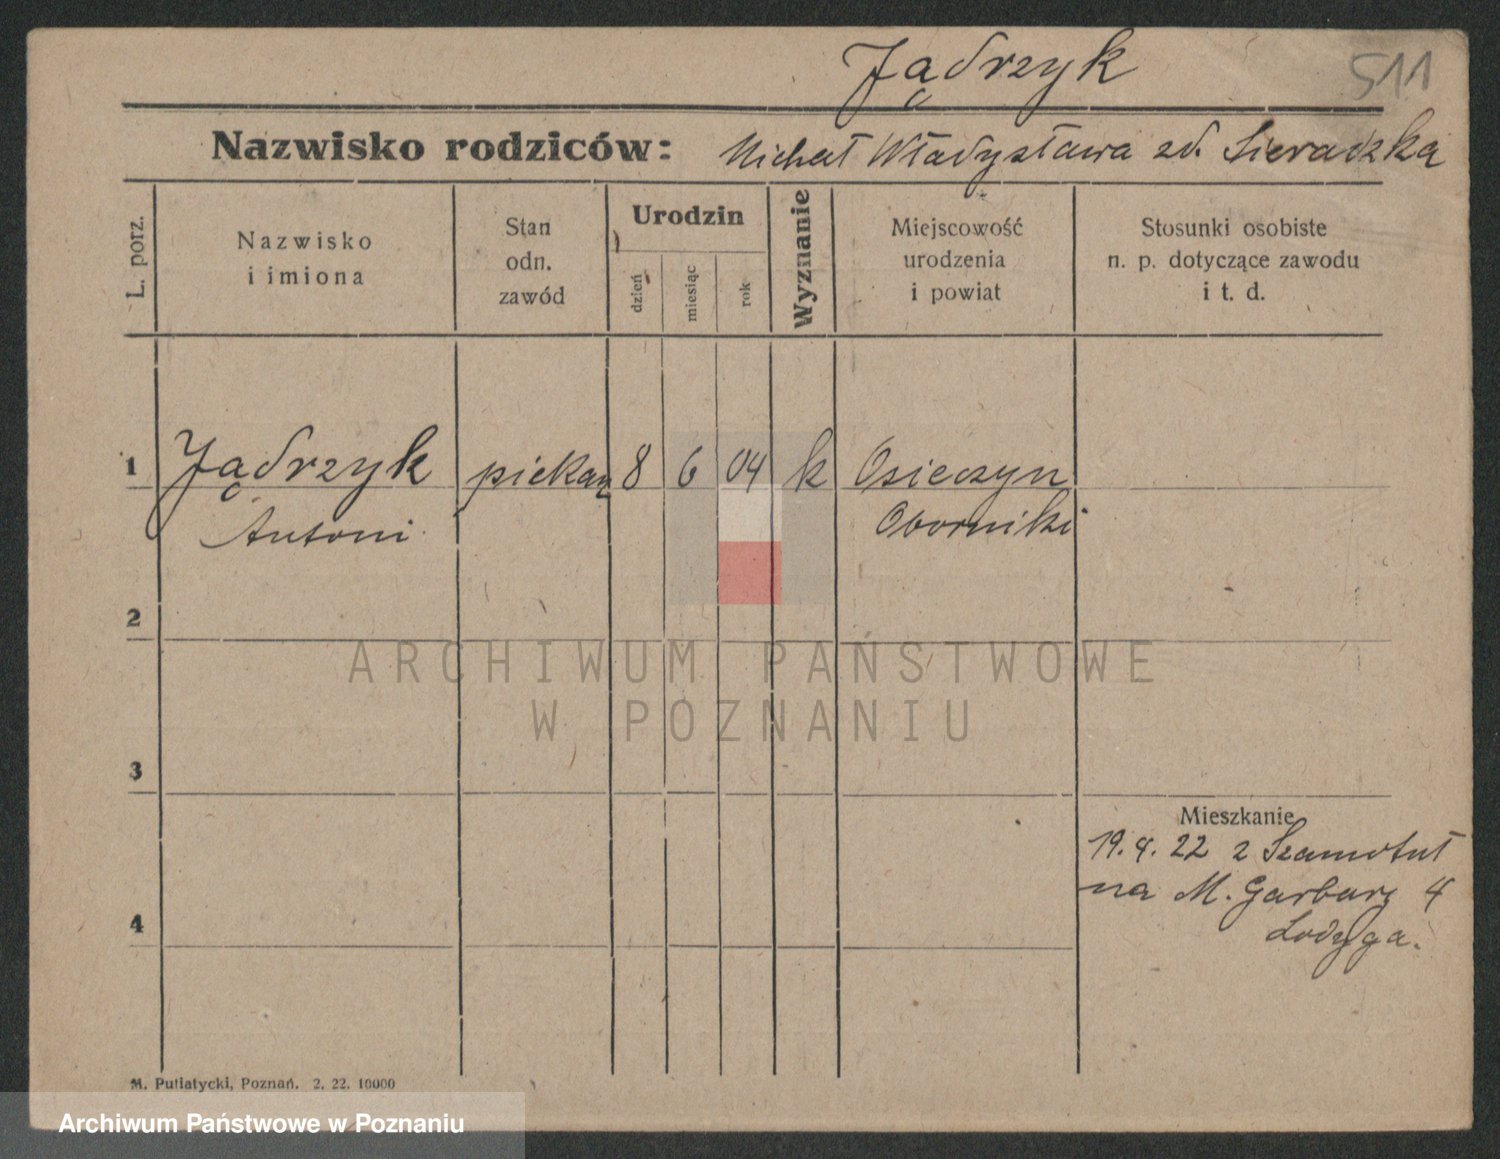 Jądrzyk
511
Nazwisko rodziców: Michał Władysława zd. Sieradzka
L. porz.
Nazwisko
i imiona
Stan
odn.
zawód
Urodzin
dzień
miesiąc
rok
Wyznanie
Miejscowość
urodzenia
i powiat
Stosunki osobiste
n. p. dotyczące zawodu
i t. d.
1 Jądrzyk piekarz 8 6 04 k Osieczyn
Antoni Oborniki
2
ARCHIWUM PAŃSTWOWE
W POZNANIU
3
Mieszkanie
19. 4. 22 z Szamotuł
na M. Garbary 4
Lodyga.
4
M. Putiatycki, Poznań. 2. 22. 10000
Archiwum Państwowe w Poznaniu